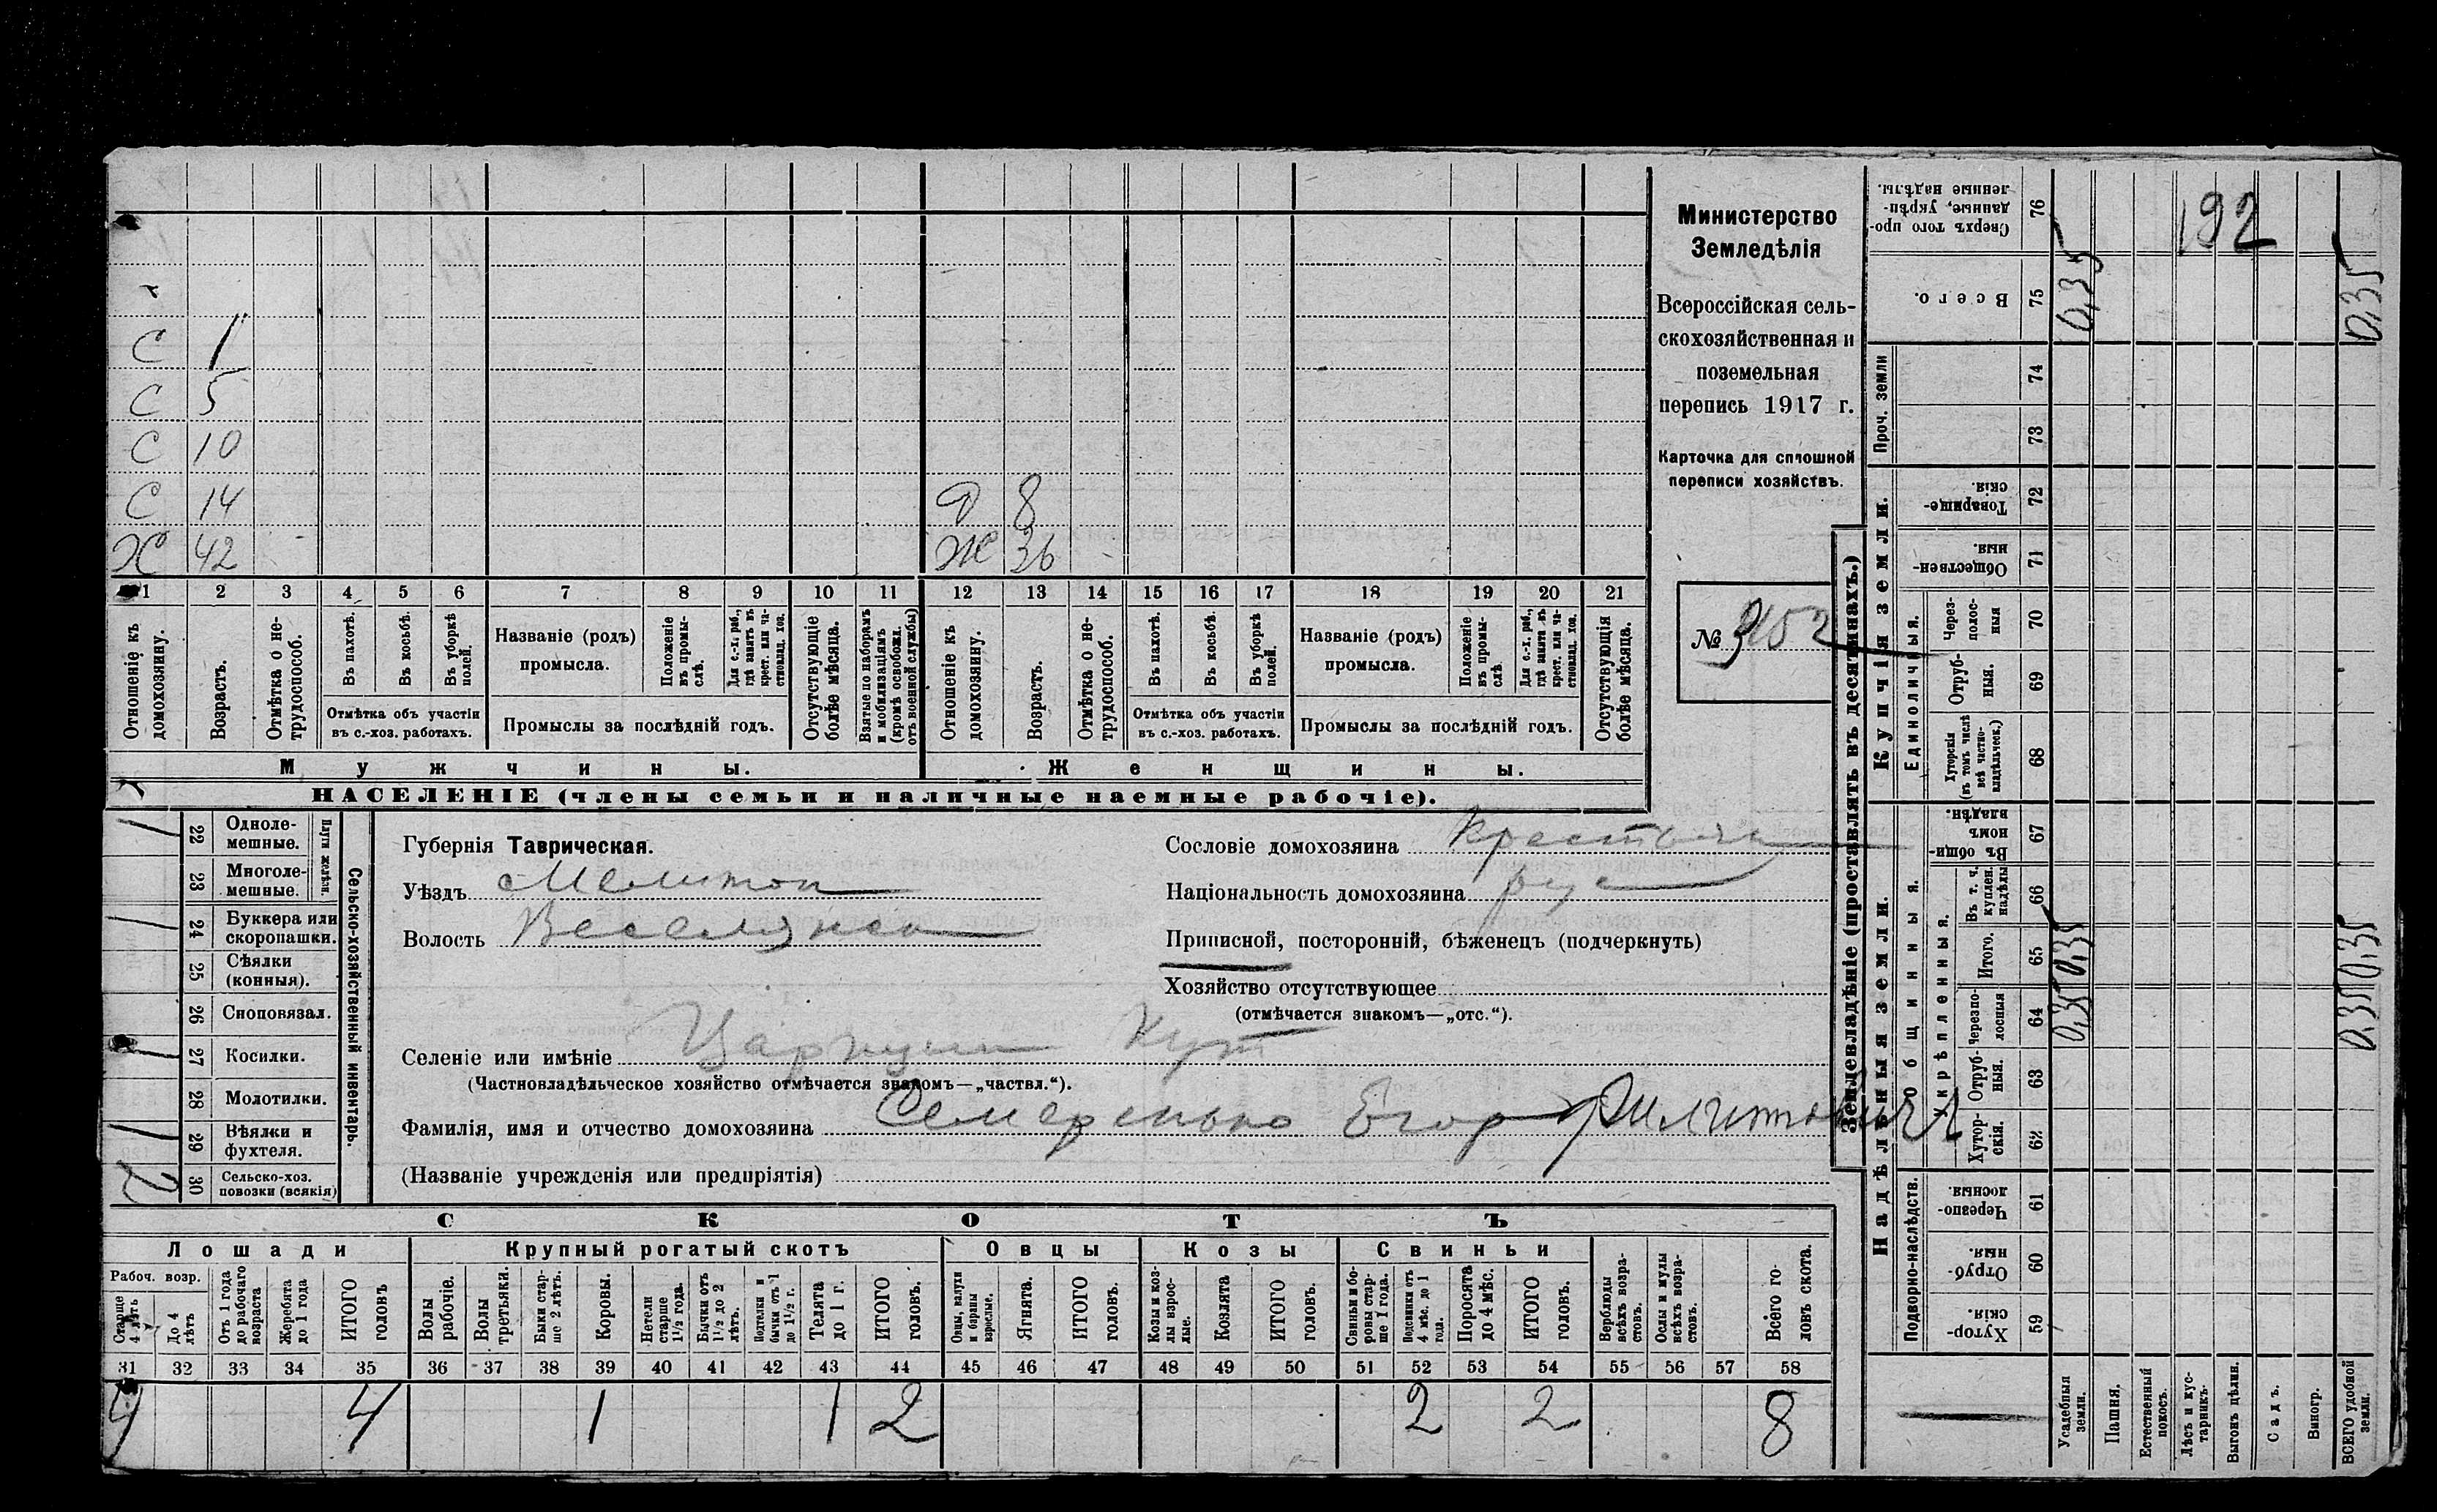 192
Министерство
Земледѣлія
Всероссійская сель-
скохозяйственная и
поземельная
перепись 1917 г.
Карточка для сплошной
переписи хозяйствъ.
№ 
С 1
С 5
С 10
С 14 Д 8
Х 42 Ж 36
1 2 3 4 5 6 7 8 9 10 11 12 13 14 15 16 17 18 19 20 21
Отношеніе къ домохозяину.
Возрастъ.
Отмѣтка о не-трудоспособ.
Въ пахотѣ.
Въ косьбѣ.
Въ уборкѣ полей.
Отмѣтка объ участіи
въ с.-хоз. работахъ.
Названіе (родъ)
промысла.
Положеніе въ промы-слѣ.
Для с.-х. раб., гдѣ занятъ въ крест. или ча-стновлад. хоз.
Промыслы за послѣдній годъ.
Отсутствующіе болѣе мѣсяца.
Взятые по наборамъ и мобилизаціямъ (кромѣ освобожд. отъ военной службы)
Отношеніе къ домохозяину.
Возрастъ.
Отмѣтка о не-трудоспособ.
Въ пахотѣ.
Въ косьбѣ.
Въ уборкѣ полей.
Отмѣтка объ участіи
въ с.-хоз. работахъ.
Названіе (родъ)
промысла.
Положеніе въ промы-слѣ.
Для с.-х. раб., гдѣ занята въ крест. или ча-стновлад. хоз.
Промыслы за послѣдній годъ.
Отсутствующія болѣе мѣсяца.
Мужчины. Женщины.
НАСЕЛЕНІЕ (члены семьи и наличные наемные рабочіе).
Сельско-хозяйственный инвентарь.
Плуги желѣзн.
/ 22 Одноле-мешные.
23 Многоле-мешные.
/ 24 Буккера или скоропашки.
25 Сѣялки (конныя).
26 Сноповязал.
/ 27 Косилки.
28 Молотилки.
/ 29 Вѣялки и фухтеля.
2 30 Сельско-хоз. повозки (всякія)
Губернія Таврическая.
Уѣздъ Мелитоп
Волость Веселянская
Сословіе домохозяина крестьян
Національность домохозяина рус
Приписной, посторонній, бѣженецъ (подчеркнуть)
Хозяйство отсутствующее
(отмѣчается знакомъ—„отс.“).
Селеніе или имѣніе Царицын Кут
(Частновладѣльческое хозяйство отмѣчается знакомъ—„частвл.“).
Фамилія, имя и отчество домохозяина Семеренько Егор Филиппович
(Названіе учрежденія или предпріятія)
СКОТЪ
Лошади Крупный рогатый скотъ Овцы Козы Свиньи
Рабоч. возр.
Старше 4 лѣтъ
До 4 лѣтъ
Отъ 1 года до рабочаго возраста
Жеребята до 1 года
ИТОГО головъ
Волы рабочіе.
Волы третьяки.
Быки стар-ше 2 лѣтъ.
Коровы.
Нетели старше 1½ года.
Бычки отъ 1½ до 2 лѣтъ.
Подтелки и бычки отъ 1 до 1½ г.
Телята до 1 г.
ИТОГО головъ.
Овцы, валухи и бараны взрослые.
Ягнята.
ИТОГО головъ.
Козы и коз-лы взрос-лые.
Козлята
ИТОГО головъ.
Свиньи и бо-ровы стар-ше 1 года.
Подсвинки отъ 4 мѣс. до 1 года.
Поросята до 4 мѣс.
ИТОГО головъ.
Верблюды всѣхъ возра-стовъ.
Ослы и мулы всѣхъ возра-стовъ.
Всего го-ловъ скота.
31 32 33 34 35 36 37 38 39 40 41 42 43 44 45 46 47 48 49 50 51 52 53 54 55 56 57 58
4 4 1 1 2 2 2 8
Землевладѣніе (проставлять въ десятинахъ.)
Надѣльныя земли. Купчія земли. Проч. земли
Подворно-наслѣдств.
Общинныя.
Укрѣпленныя.
Единоличныя.
Хутор-скія. 59
Отруб-ныя. 60
Черезпо-лосныя 61
Хутор-скія. 62
Отруб-ныя. 63
Черезпо-лосныя 64
Итого. 65
Въ т. ч. куплен. надѣлы 66
Въ общи-номъ владѣн. 67
Хуторскія (въ томъ числѣ всѣ частно-владѣльческ.) 68
Отруб-ныя. 69
Через-полос-ныя 70
Обществен-ныя 71
Товарище-скія. 72
73
74
Всего. 75
Сверхъ того про-данные, укрѣп-ленные надѣлы. 76
Усадебныя земли. 0,35 0,35 0,35
Пашня.
Естественный покосъ.
Лѣсъ и кус-тарникъ.
Выгонъ дѣлин.
Садъ.
Виногр.
ВСЕГО удобной земли. 0,35 0,35 0,35